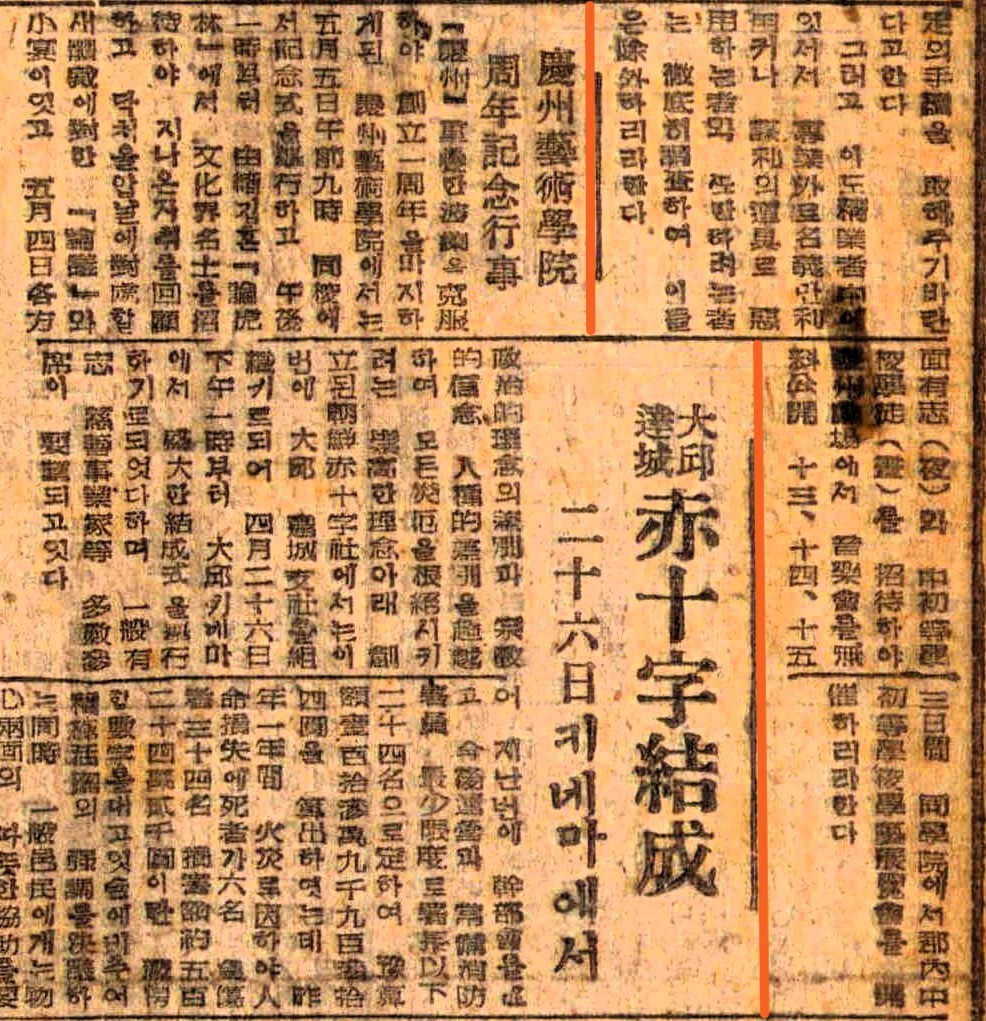 の手續을 取해주기바란
다고한다
그러고 이도 業者中에
잇서서 事業外로名義만利
用커나 謀利의道具로 惡
用하는者와 또만하려는者
는 徹底히調査하여 이들
은除外하리라한다
慶州藝術學院
周年記念行事
『慶州』
하야 創立一周年을마지하
게된 慶州藝術學院에서는
五月五日午前九時 同校에
서記念式을擧行하고 午後
一時부터 由緖깁흔『論虎
林』에서 文化界名士를招
待하야 지나온자취를回顧
하고 닥처올압날에對處할
새 에對한 『論議』와
小宴이잇고 五月四日各方
面有志(夜)와 中初等
校學徒(晝)를 招待하야
에서 音樂會를無
料公開 十三、十四、十五
三日間 同學院에서郡內中
初等學校學藝展覽會를 開
催하리라한다
大邱
達城
赤十字結成
二十六日키네마에서
政治的理念의差別과 宗敎
的信念 人種的 을超越
하여 모든災厄을根絕시키
려는 崇高한理念아래 創
立된朝鮮赤十字社에서는이
번에 大邱 達城支社를組
織키로되어 四月二十六日
下午一時부터 大邱키네마
에서 盛大한結成式을擧行
하기로되엇다하며 一般有
志 慈善事業家等 多數參
席이 要望되고잇다
어 지난번에 幹部會을
고 今後運營과 常備消防
署員 最少限度로署長以下
二十四名으로定하여 豫算
額壹百拾參萬九千九百 拾
四圓을 算出하엿는데 昨
年一年間 火災로因하야人
命損失에死者가六名
者三十四名 損害額約五百
二十四萬貳千圓이란
한數字를내고잇슴에비추어
의 强調를 하
는同時 一般邑民에게는物
心兩面의 따뜻한協助를要